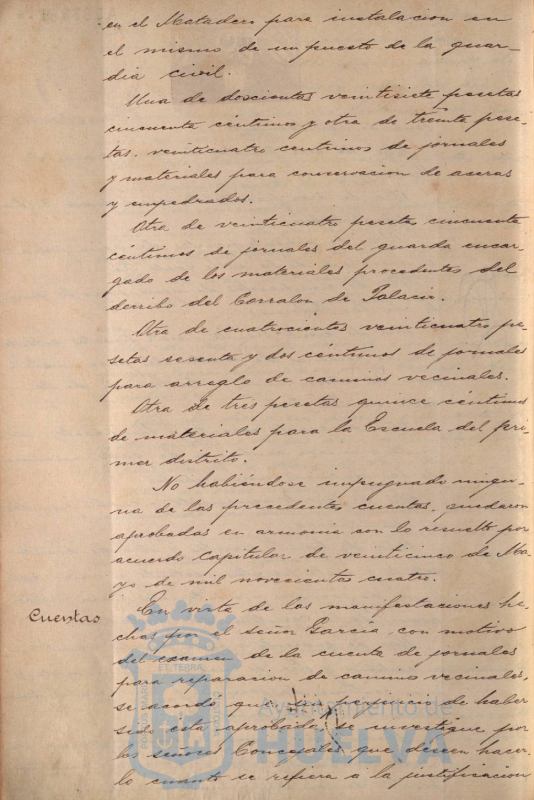 en el Matadero para instalacion en
el mismo de un puesto de la guar-
dia civil.
Una de doscientas veintisiete pesetas
cincuenta céntimos y otra de treinta pese-
tas. veinticuatro centimos de jornales
y materiales para conservacion de aceras
y empedrados.
Otra de veinticuatro pesetas cincuenta
céntimos de jornales del guarda encar-
gado de los materiales procedentes del
derribo del Corralon de Palacio.
Otra de cuatrocientas veinticuatro pe-
setas sesenta y dos céntimos de jornales
para arreglo de caminos vecinales.
Otra de tres pesetas quince céntimos
de materiales para la Escuela del pri-
mer distrito.
No habiéndose impugnado ningu-
na de las precedentes cuentas, quedaron
aprobadas en armonia con lo resuelto por
acuerdo Capitular de veinticinco de Ma-
yo de mil novecientos cuatro.
Cuentas
En virtud de las manifestaciones he-
chas por el señor García con motivo
del examen de la cuenta de jornales
para reparacion de camino vecinales,
se acordó que sin perjuicio de haber
sido esta aprobada se investigue por
los señores Concejales que deseen hacer-
lo cuanto se refiera a la justificacion
Ayuntamiento de
HUELVA